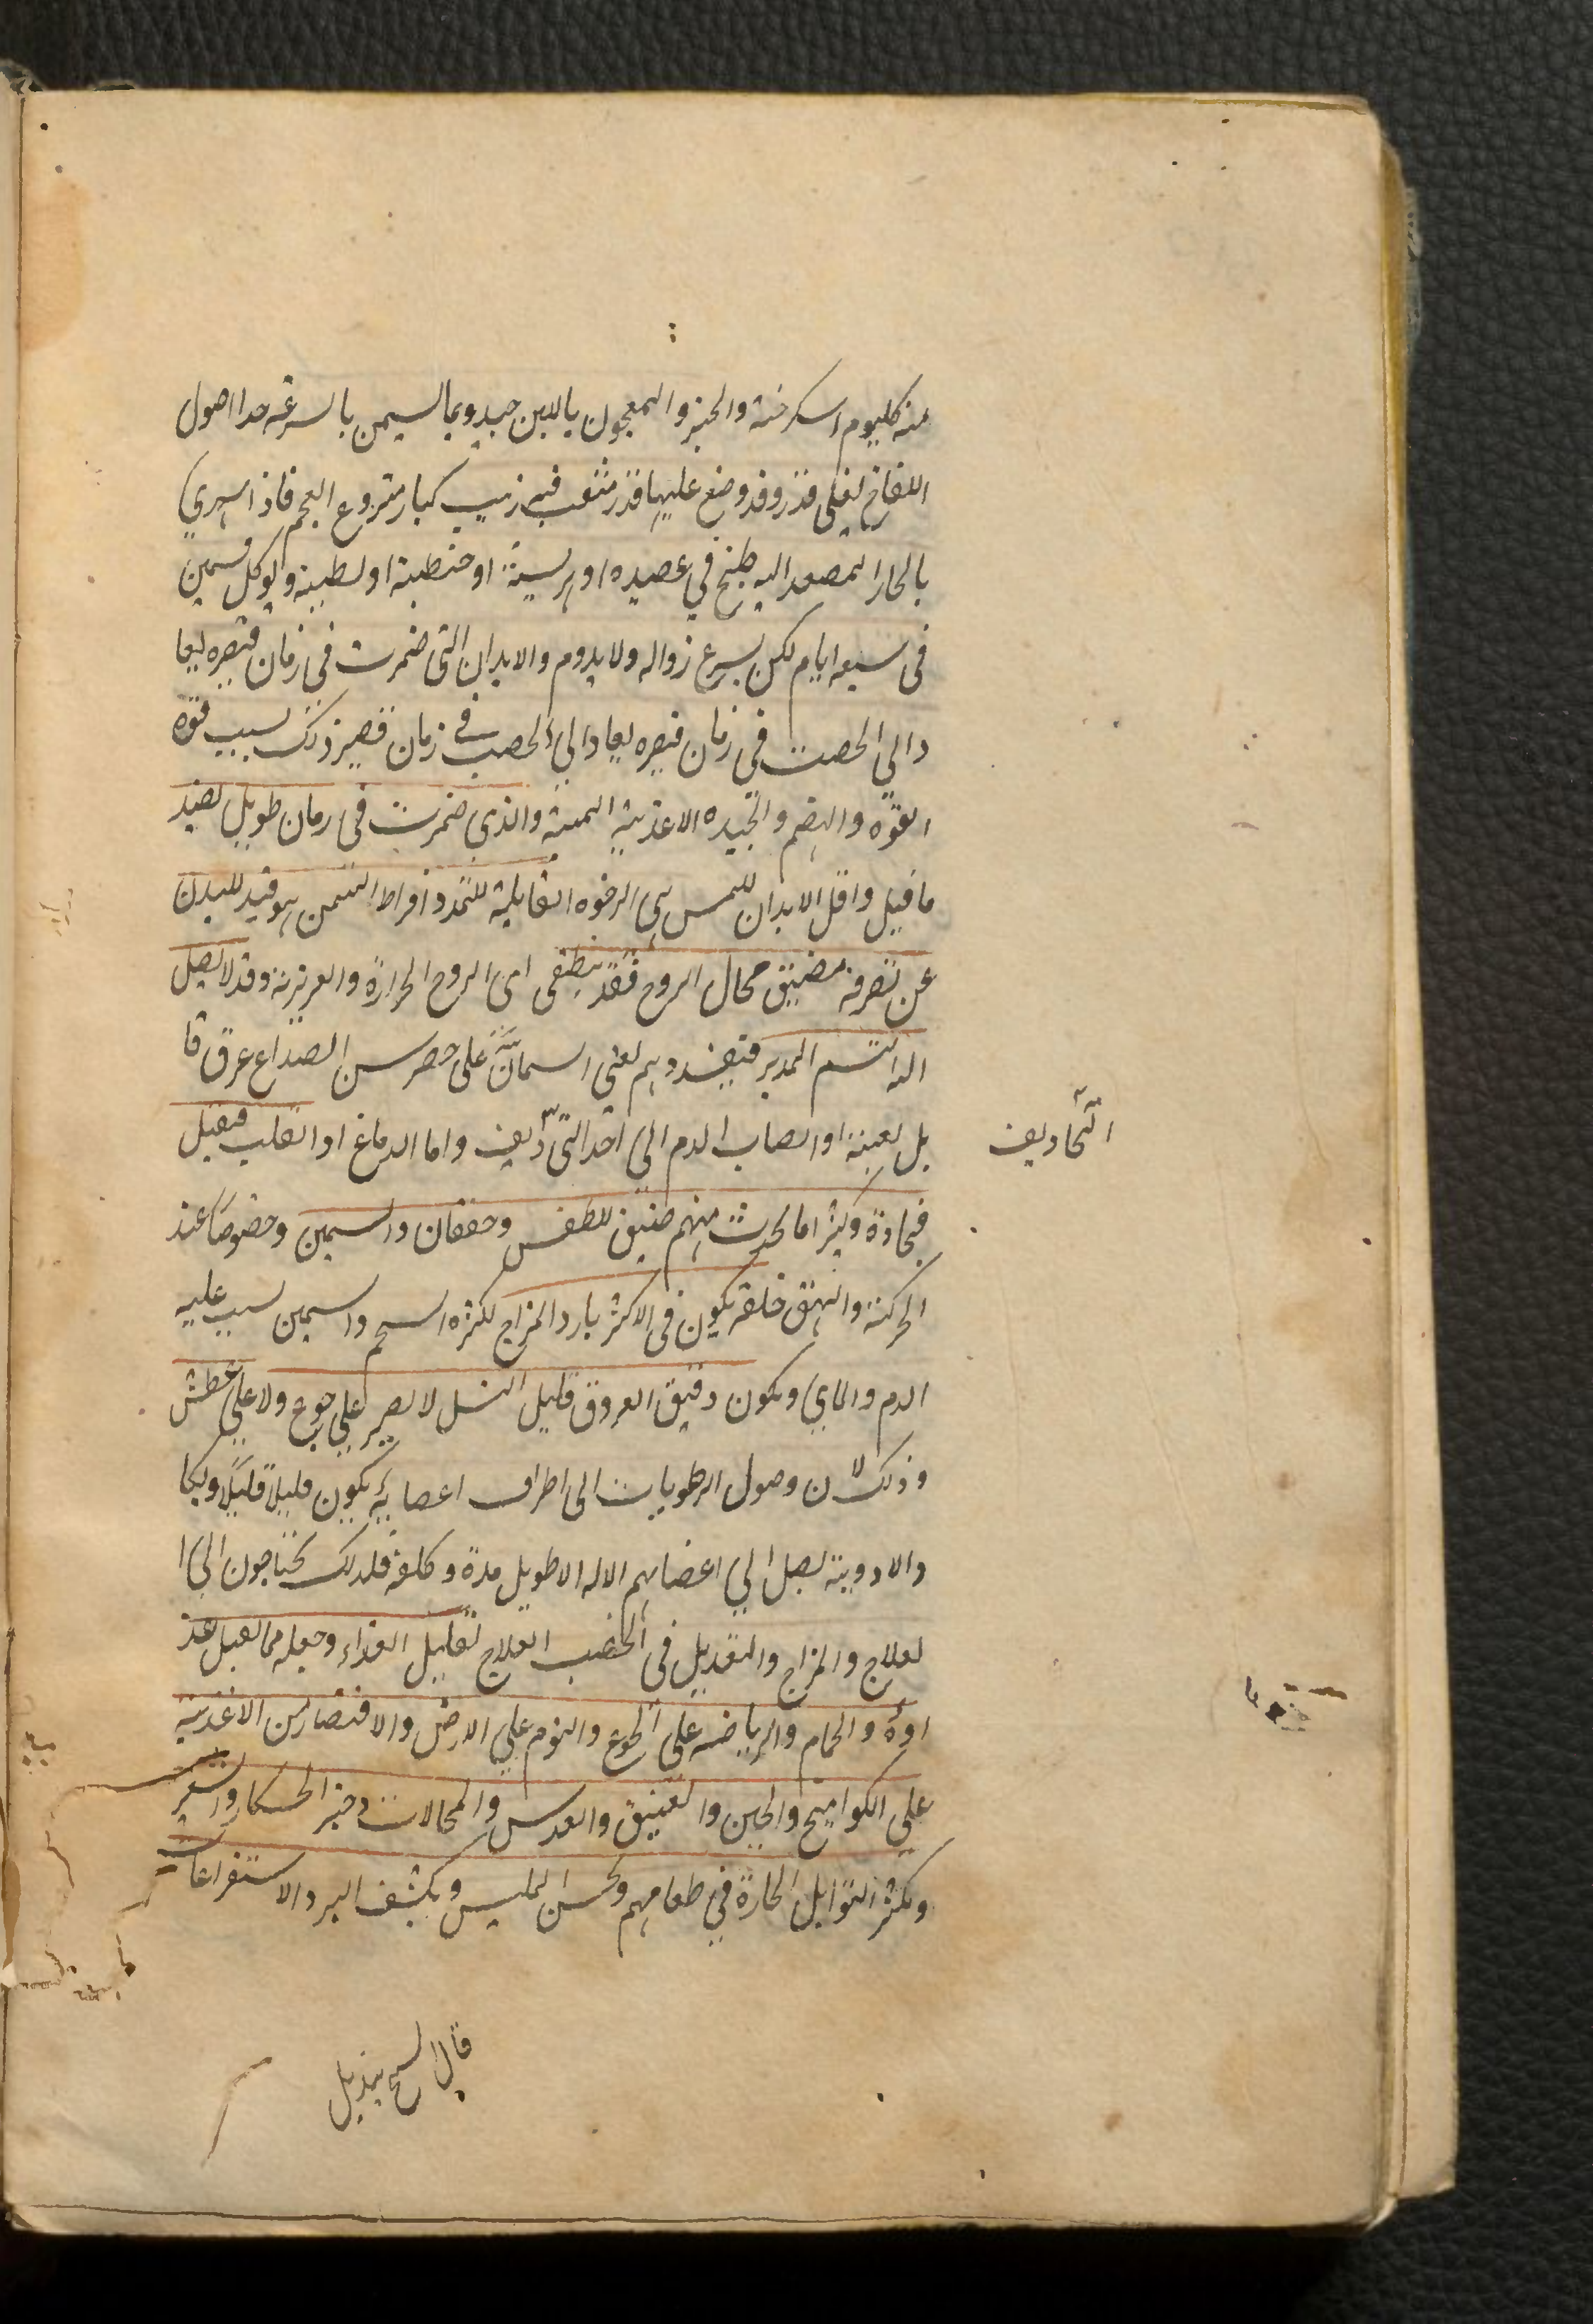 منه كليوم اسكرخبة والخبز والمعجون بالابن جيد ومما يسمن بالسرعة جدا اصول
اللفاح يغلى قدر وقد وضع عليها قدر مثقب فيه زبيب كبار منزوع العجم فاذا تهري
بالحار المصعد اليه طبخ في عصيده او هريسة او حنطية او لطيبة ويوكل فسمين
فى سبعه ايام لكن يسرع زواله ولا يدوم والابدان التى ضمرت فى زمان قصيره يعا
دالي الخصب في زمان قصيره يعاد الي الخصب فى زمان قصير ذلك بسبب قوه
القوة والهضم والجيده الاغذيه السمنة والذى ضمرت فى زمان طويل بضد
ما قيل واقل الابدان للسمن هي الرخوه القابلية للتمدد افراط السمن هو قيد للبدن
عن تصرفه مضيق مجال الروح فقد ينطفى اى الروح الحرارة والعريزية وقد لا يصل
اليه النسم المدبر فيفسد وهم يعنى السمان على خطر من انصداع عرق قا
بل بغتة او انصاب الدم الي احد التجاويف واما الدماغ او القلب فيقتل
التجاويف
فجاءة وكثيرا ما يحدث منهم ضيق للنفس وخفقان والسمين وخصوصا عند
الحركة والهق خلقه يكون فى الاكثر بارد المزاج لكثره السحم والسمين لسبب عليه
الدم والماي ويكون دقيق العروق قليل النسل لا يصبر علي جوع ولا علي عطش
وذلك لان وصول الرطوبات الى اطراف اعضائه يكون قليلا قليلا وبكا
والادوية يصل الي اعضائهم الاله الا طويل مدة وكلفة فلذلك يحتاجون الي ا
لعلاج والمزاج والتعديل فى الخصب العلاج تقليل الغذاء وجعله مما يقبل غذ
اوه والحمام والرياضه على الجوع والنوم علي الارض والاقتصار من الاغذيه
علي الكواميخ والجبن والعتيق والعدس والمحالات وخبز الخشكار والشعير
ويكثر التوابل الحارة في طعامهم ويحسن الملبس ويكشف البرد الاستفراغات
قال الشيخ يبديل